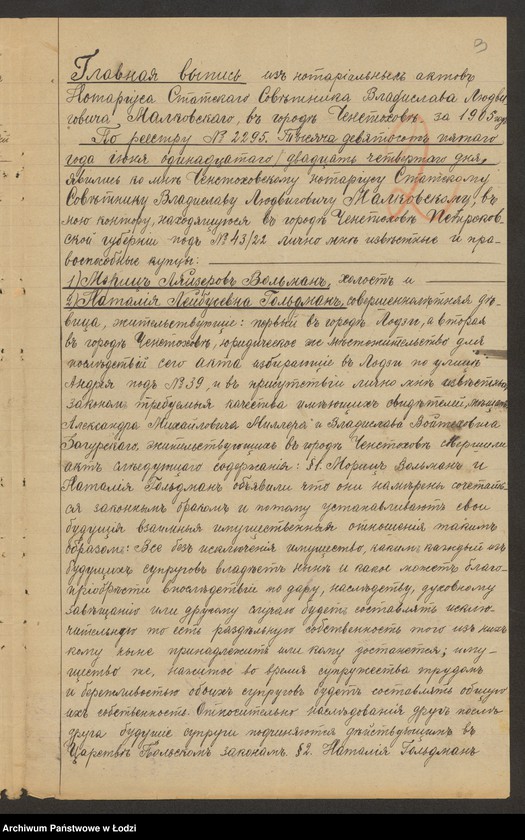 3
Главная выпись изъ нотаріальныхъ актовъ
Нотаріуса Статскаго Совѣтника Владислава Людви-
говича Малковскаго, въ городѣ Ченстоховѣ за 1905 годъ
По реестру № 2295. Тысяча девятьсотъ пятаго
года іюня одинадцатаго/двадцать четвертаго дня,
явились ко мнѣ Ченстоховскому нотаріусу Статскому
Совѣтнику Владиславу Людвиговичу Малковскому, въ
мою контору, находящуюся въ городѣ Ченстоховѣ Петроков-
ской губерніи подъ № 43/22 лично мнѣ извѣстные и пра-
воспособные купцы:
1) Морицъ Ляйзеровъ Вольманъ, холостъ и
2) Наталія Лейбусевна Гольдманъ, совершеннолѣтняя дѣ-
вица, жительствующіе: первый въ городѣ Лодзи, а вторая
въ городѣ Ченстоховѣ, юридическое же мѣстожительство для
послѣдствій сего акта избирающіе въ Лодзи по улицѣ
Андрея подъ № 39, и въ присутствіи лично мнѣ извѣстныхъ
закономъ требуемыя качества имѣющихъ свидѣтелей,
Александра Михайловича Миллера и Владислава Войтеховича
Загурскаго, жительствующихъ въ городѣ Ченстоховѣ совершили
актъ слѣдующаго содержанія: §1. Морицъ Вольманъ и
Наталія Гольдманъ объявили что они намѣрены сочетать-
ся законнымъ бракомъ и потому устанавливаютъ свои
будущія взаимныя имущественныя отношенія такимъ
образомъ: Все безъ исключенія имущество, какимъ каждый изъ
будущихъ супруговъ владѣетъ нынѣ и какое можетъ благо-
пріобрѣсти впослѣдствіи по дару, наслѣдству, духовному
завѣщанію или другому случаю будетъ составлять исклю-
чительную то есть раздѣльную собственность того изъ нихъ
кому нынѣ принадлежитъ или кому достанется; иму-
щество же, нажитое во время супружества трудомъ
и бережливостью обоихъ супруговъ будетъ составлять общую
ихъ собственность. Относительно наслѣдованія другъ послѣ
друга будущіе супруги подчиняются дѣйствующимъ въ
Царствѣ Польскомъ законамъ. §2. Наталія Гольдманъ
Archiwum Państwowe w Łodzi